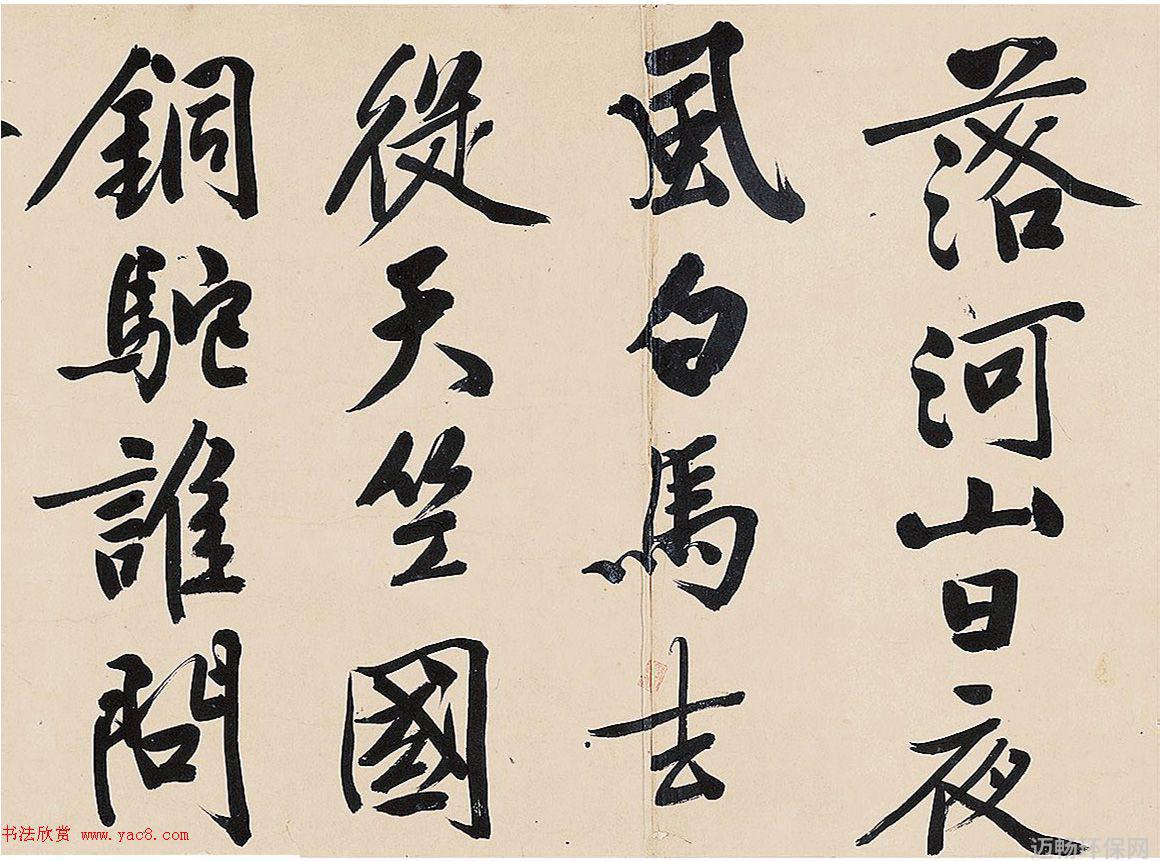 落河山日夜
風白馬去
從天竺國
銅駝誰問
书法欣赏 www.yac8.com
迈畅环保网